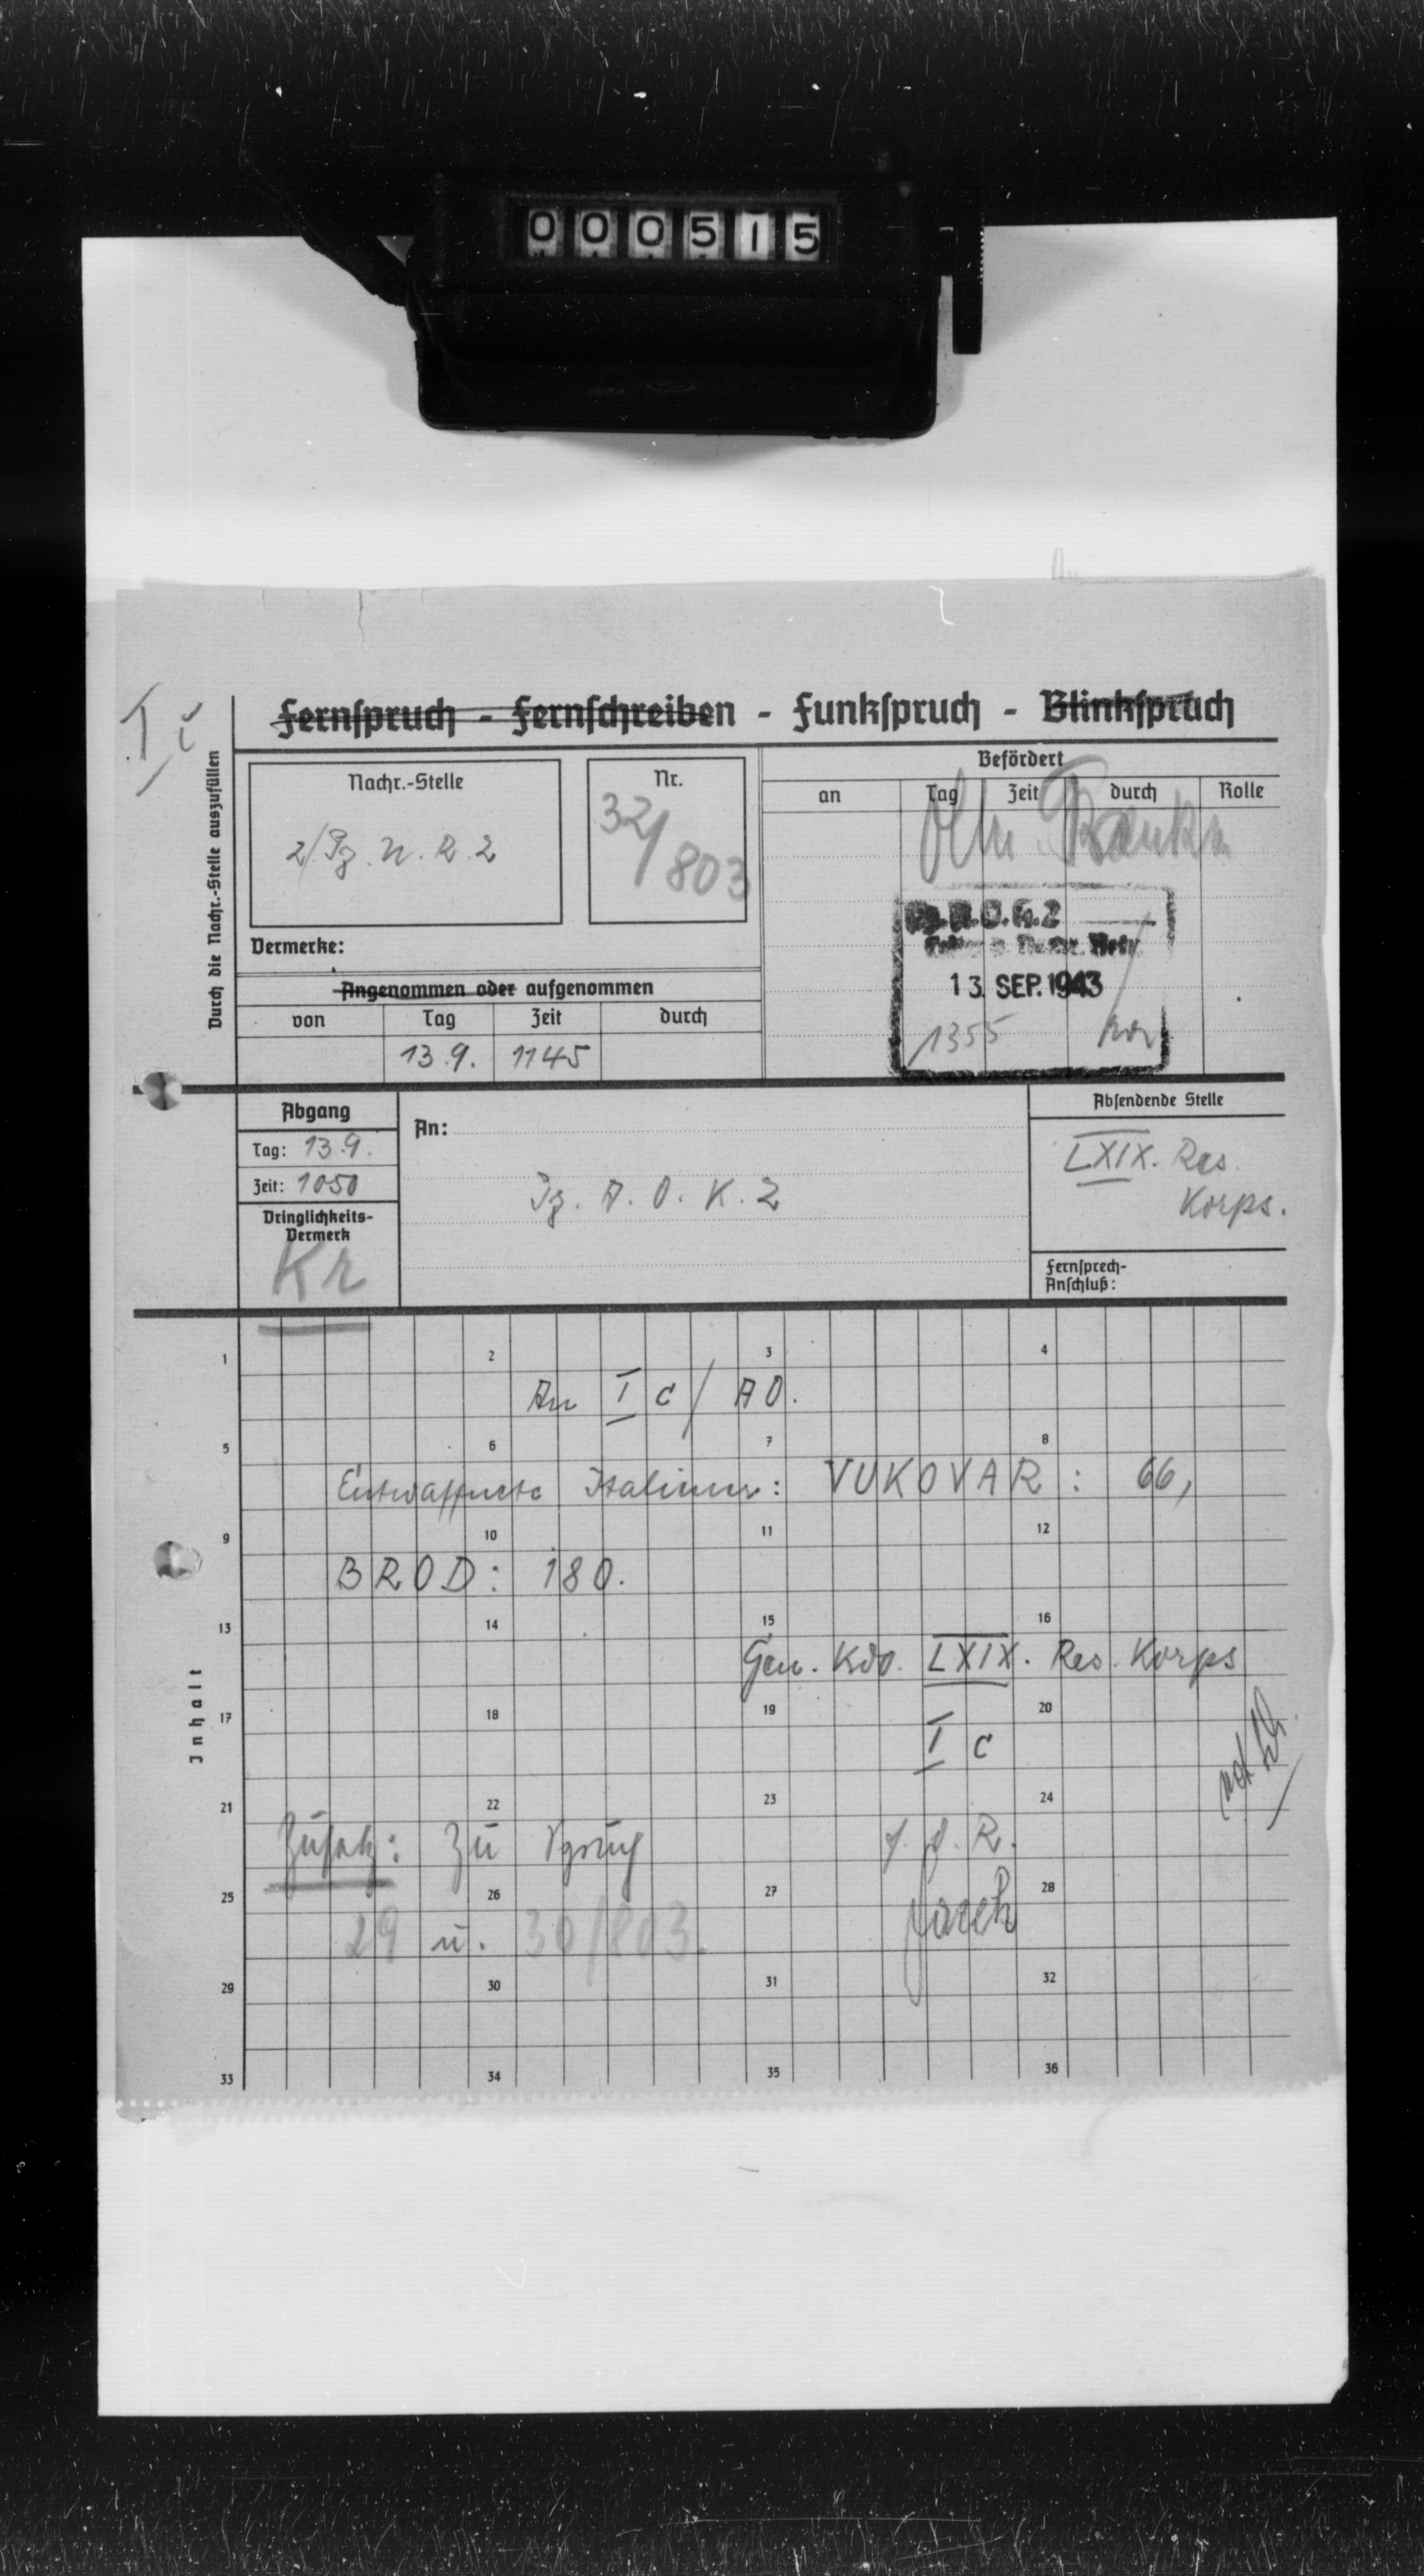 000515
Fernspruch - Fernschreiben - Funkspruch - Blinkspruch
Durch die Nachr.-Stelle auszufüllen
Nachr.-Stelle
2/Pz. N. R. 2
Nr.
32/803
Befördert
an Tag Zeit durch Rolle
Vermerke:
Angenommen oder aufgenommen
von Tag Zeit durch
13.9. 1145
13. SEP. 1943
1355
Abgang
Tag: 13.9.
Zeit: 1050
Dringlichkeits-
Vermerk
Kr
An:
Pz. A. O. K. 2
Absendende Stelle
LXIX. Res.
Korps.
Fernsprech-
Anschluß:
Inhalt
1 2 3 4
An I c / AO.
5 6 7 8
Entwaffnete Italiener: VUKOVAR: 66,
9 10 11 12
BROD: 180.
13 14 15 16
Gen. Kdo. LXIX. Res. Korps
17 18 19 20
I c
21 22 23 24
Zusatz: Zu f. d. R.
25 26 27 28
29 u. 30/803.
29 30 31 32
33 34 35 36